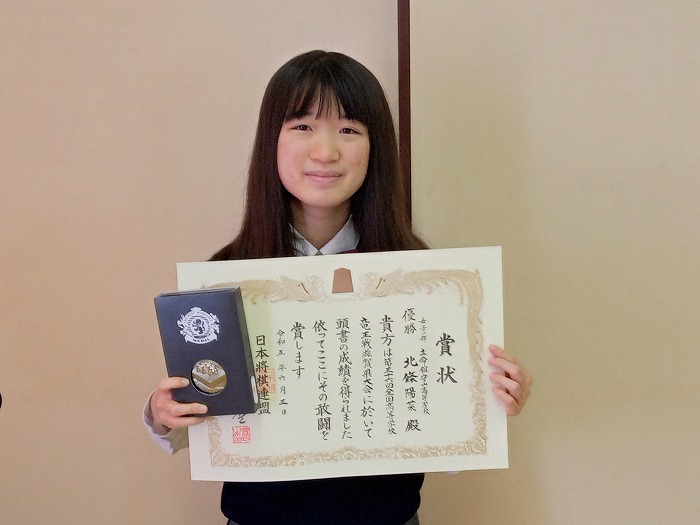 賞状
女子の部 立命館守山高等学校
優勝 北條陽菜 殿
貴方は第三十六回全国高等学校
竜王戦滋賀県大会に於いて
頭書の成績を得られました
依ってここにその敢闘を
賞します
令和五年六月三日
日本将棋連盟